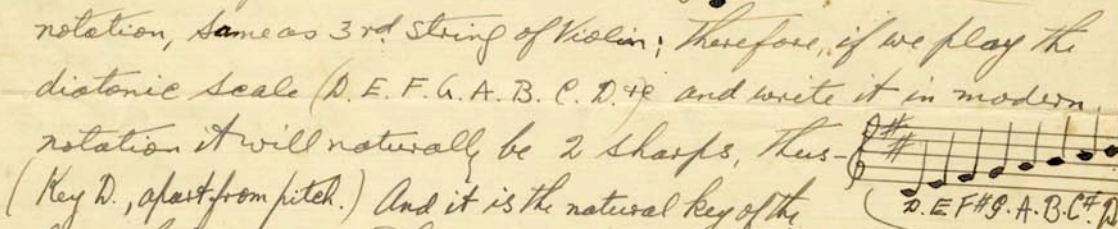 notation, same as 3rd string of Violin; Therefore, if we play the
diatonic scale (D. E. F. G. A. B. C. D. &c) and write it in modern
notation it will naturally be 2 sharps, thus-
D. E F# G. A. B. C# D
(Key D., apart from pitch.) And it is the natural key of the